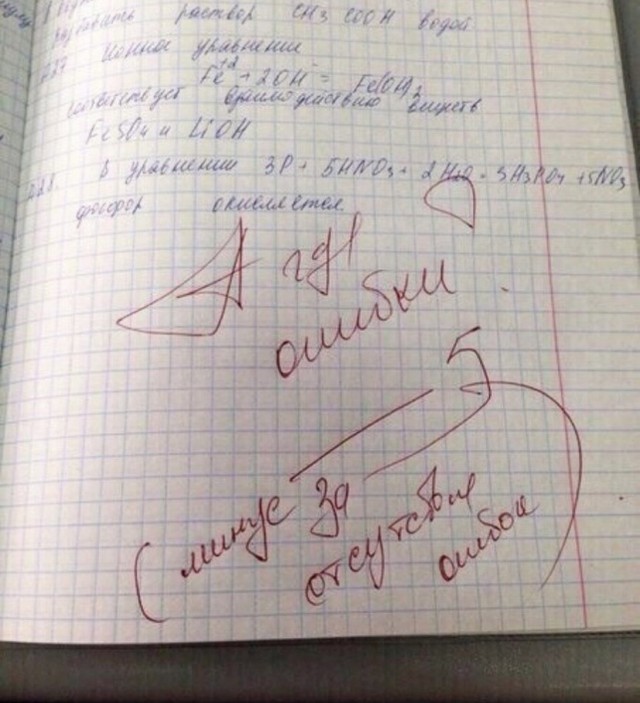 разбавить раствор CH3COOH водой
А27 Ионное уравнение
Fe+2 + 2OH- = Fe(OH)2
соответствует взаимодействию веществ
FeSO4 и LiOH
А28. В уравнении 3P + 5HNO3 + 2H2O = 3H3PO4 + 5NO
фосфор окисляется.
А где
ошибки
5
(минус за
отсутствие
ошибок)